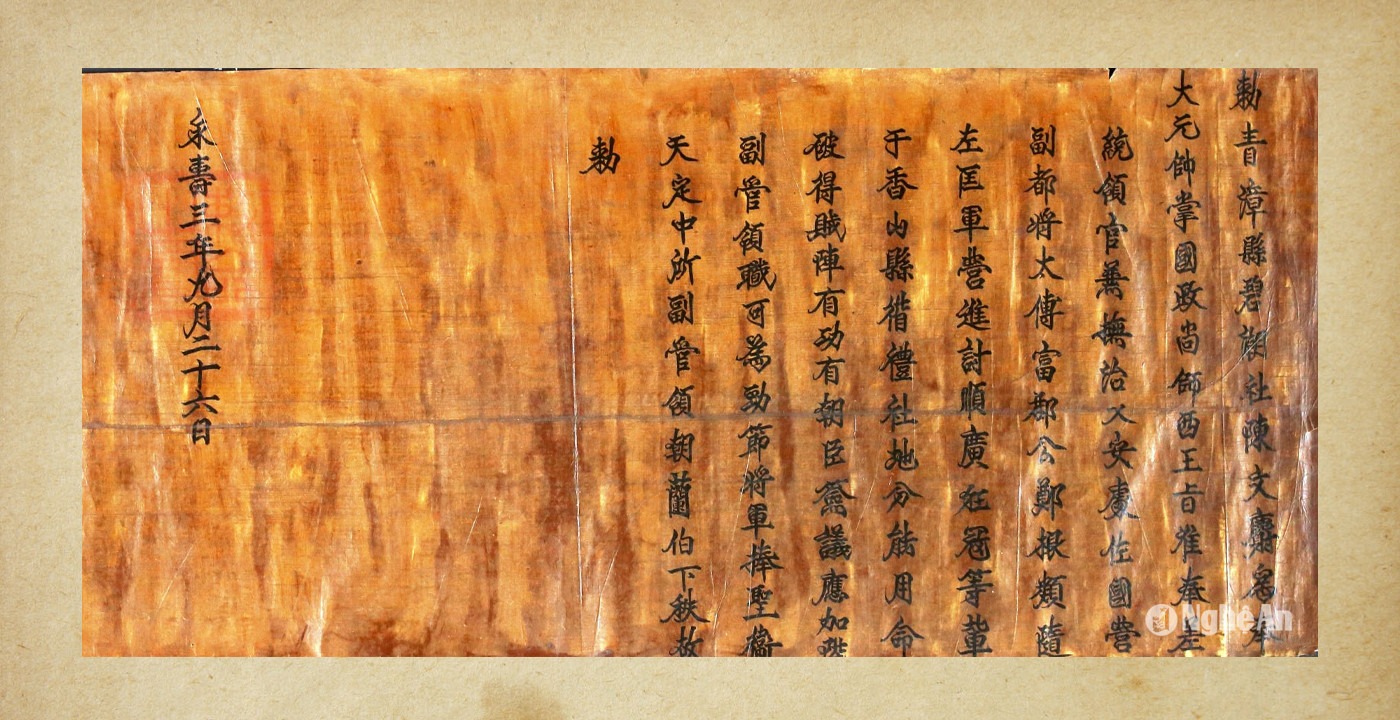 勅青漳縣碧 社陳文 奉
大元帥掌國政尚師西王旨准奉左
統領官兼撫治乂安處佐國營
副都將太傅富郡公鄭 類隨
左匡軍營進討順廣 等輩
于香山縣 禮社地分能用命
破得賊陣有功有朝臣僉議應加
副管領職可為勁節將軍捧聖衛
天定中所副管領朝蘭伯下秩故
勅
永壽三年九月二十六日
Nghệ An